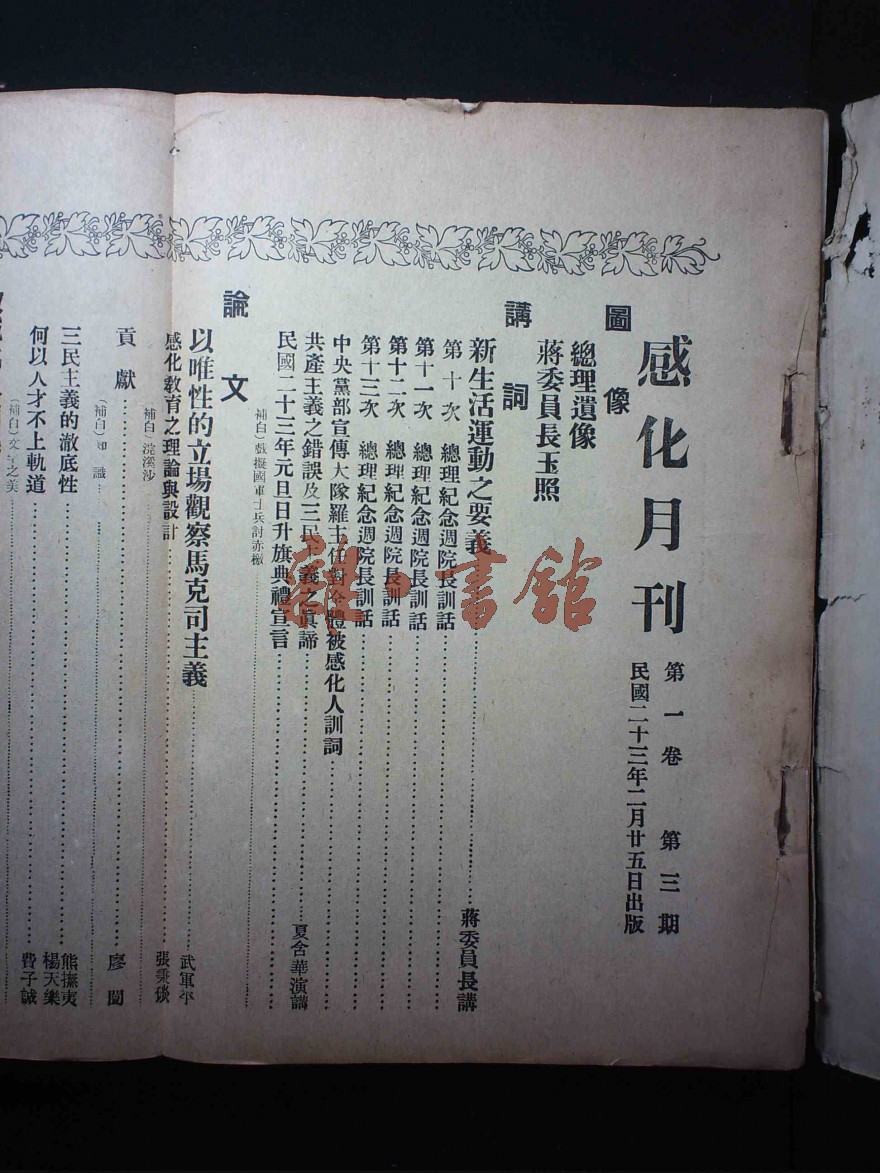 感化月刊
第一卷 第三期
民國二十三年二月廿五日出版
圖像
總理遺像
蔣委員長玉照
講詞
新生活運動之要義 蔣委員長講
第十次 總理紀念週院長訓話
第十一次 總理紀念週院長訓話
第十二次 總理紀念週院長訓話
第十三次 總理紀念週院長訓話
中央黨部宣傳大隊羅主任對全體被感化人訓詞
共產主義之錯誤及三民主義之眞諦 夏含華演講
民國二十三年元旦日升旗典禮宣言
補白）戲擬國軍士兵討赤檄
論文
以唯性的立場觀察馬克司主義 武軍平
感化教育之理論與設計 張秉琰
補白）浣溪沙
貢獻 廖闓
（補白）知識
三民主義的澈底性 熊撫夷 楊天樂
何以人才不上軌道 費子誠
（補白）文字之美
雜·書館